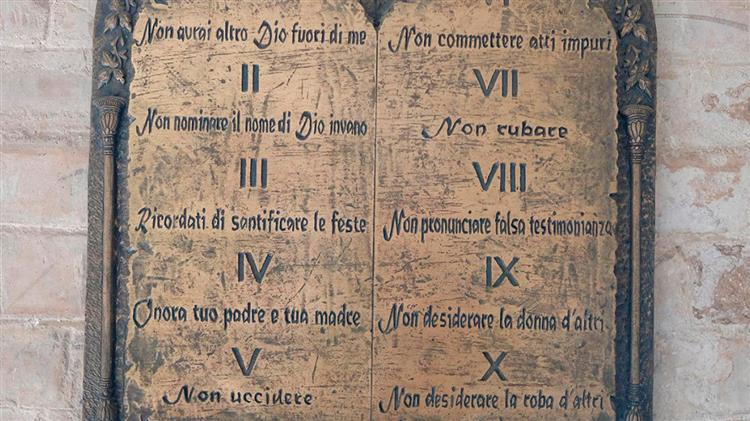 Non avrai altro Dio fuori di me
II
Non nominare il nome di Dio invano
III
Ricordati di santificare le feste
IV
Onora tuo padre e tua madre
V
Non uccidere
Non commettere atti impuri
VII
Non rubare
VIII
Non pronunciare falsa testimonianza
IX
Non desiderare la donna d'altri
X
Non desiderare la roba d'altri